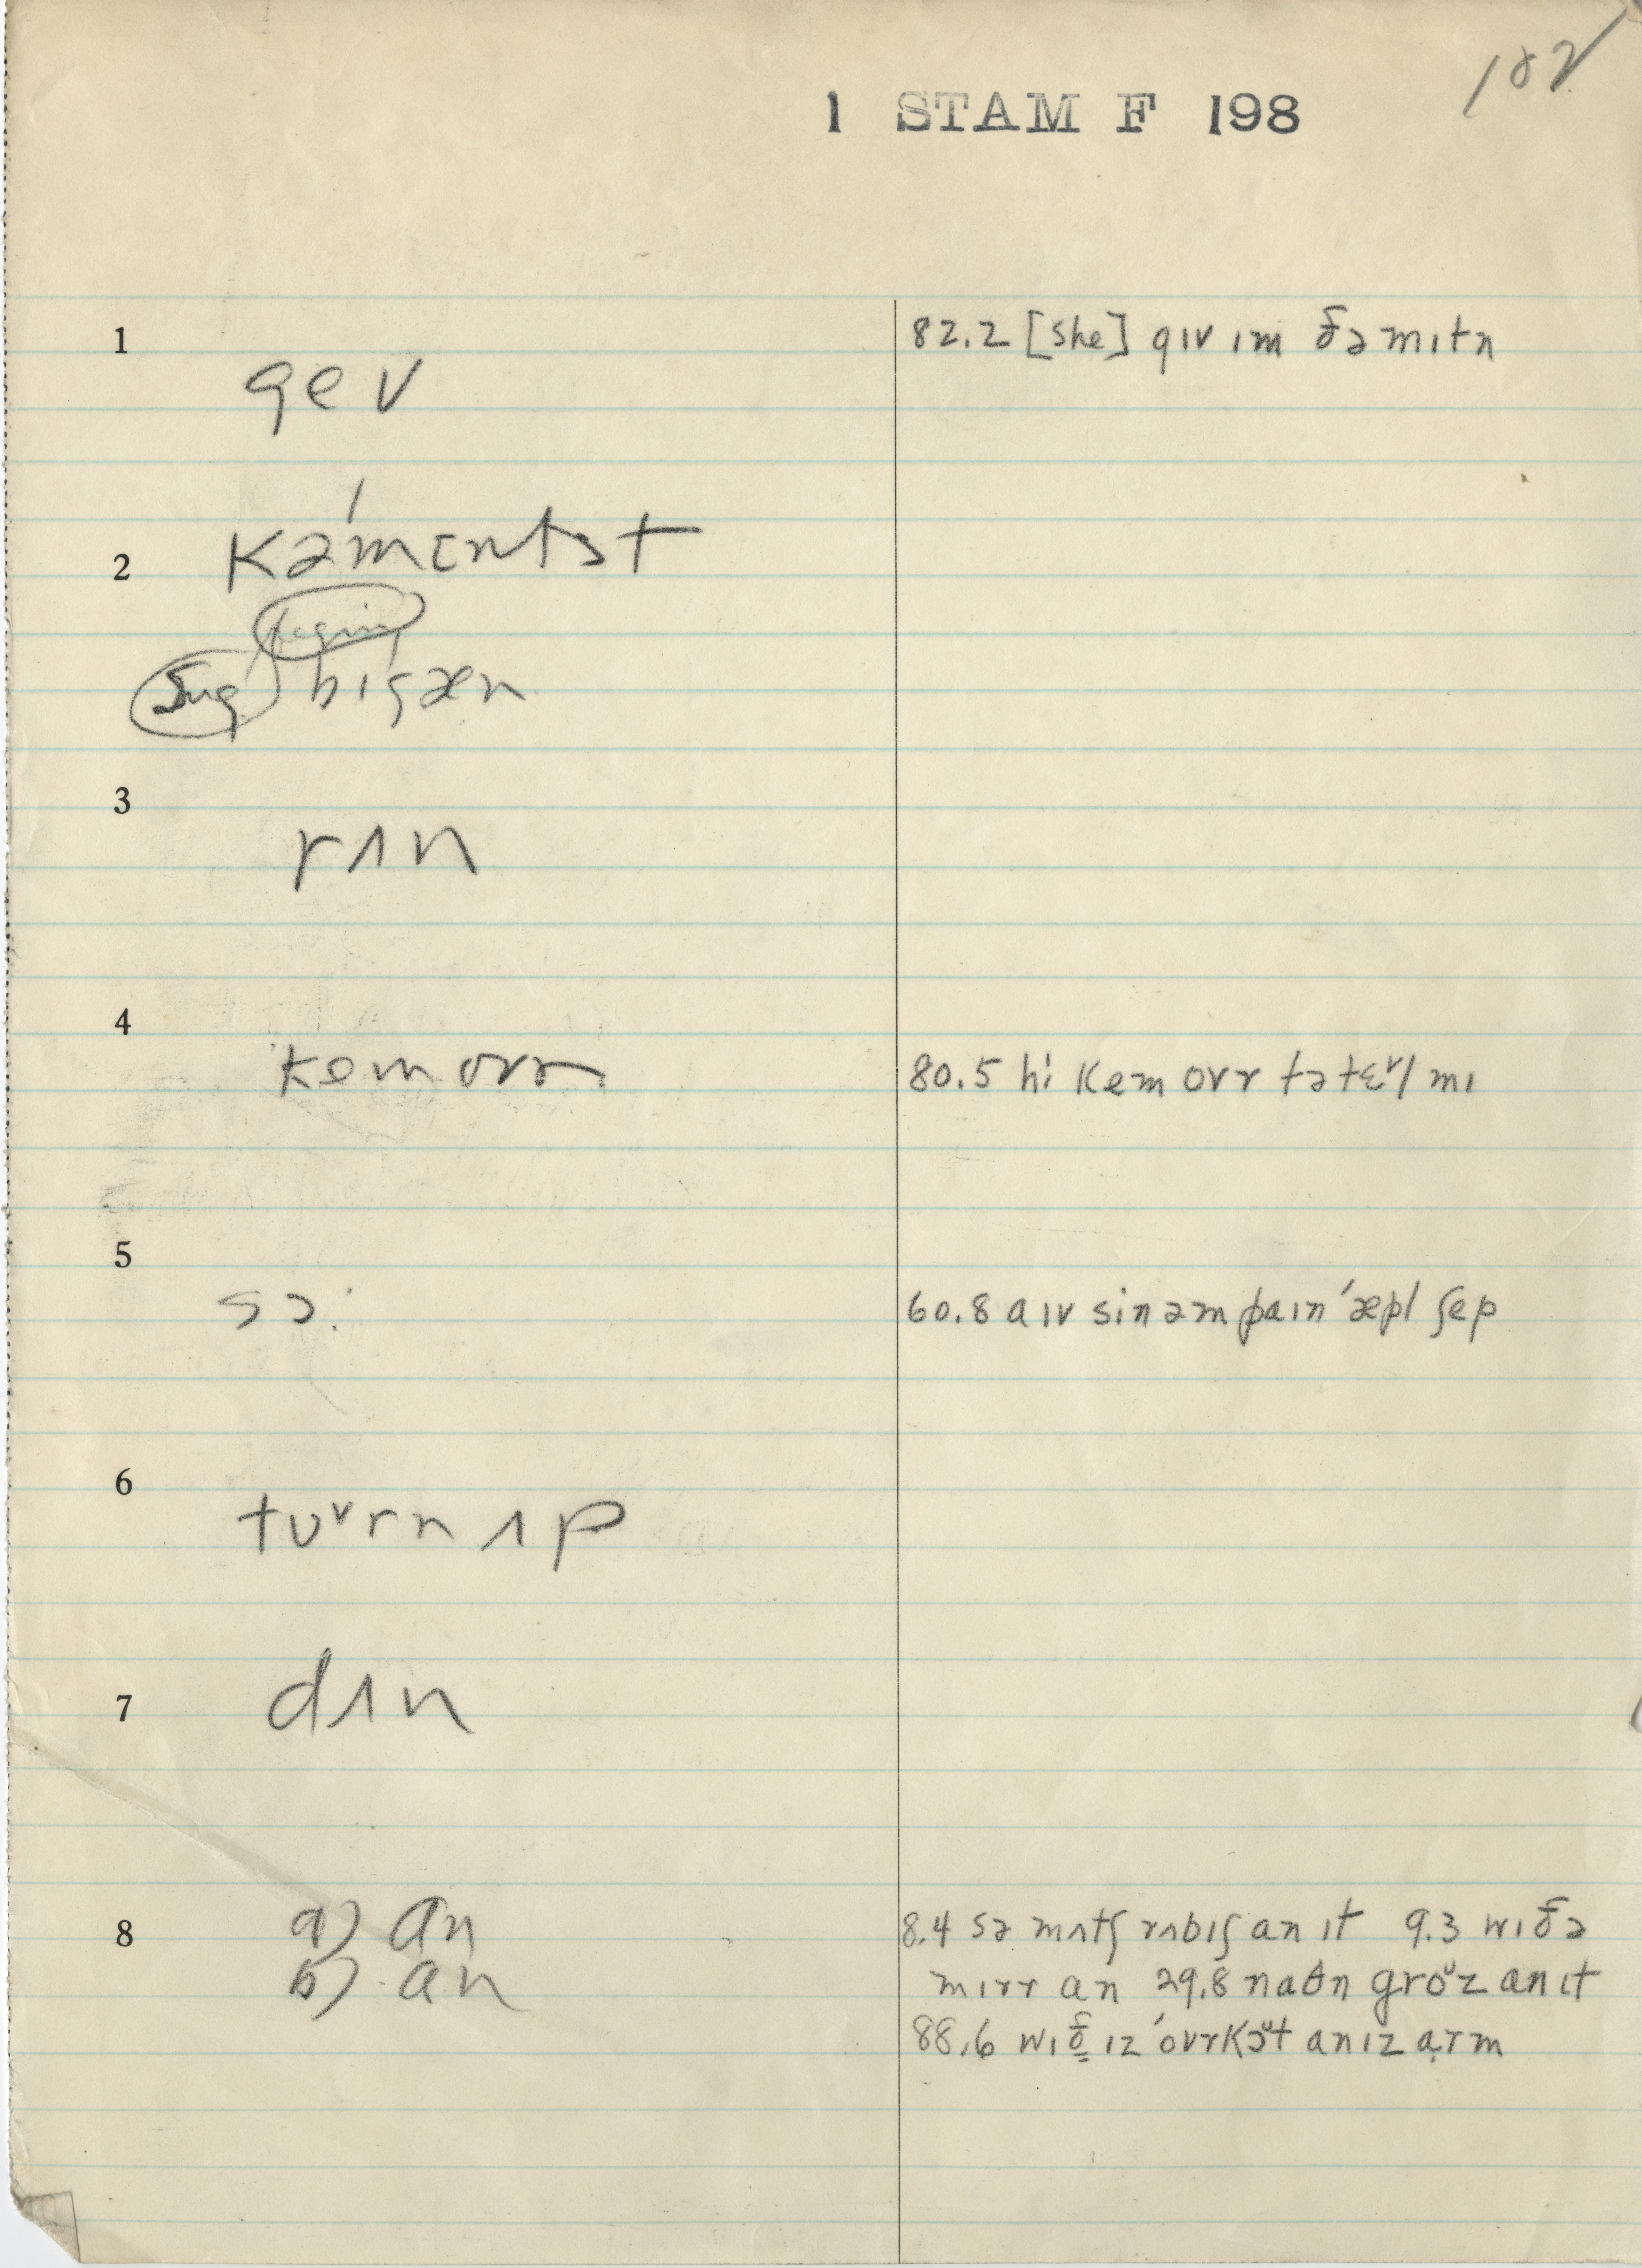 102
1 STAM F 198
1 gev 82.2 [she] gɪv ɪm ðə mɪtn
2 kəˈmɛntst
begin
Sug bɪgæn
3 rʌn
4 kem ovr 80.5 hi kem ovr tə tɛᵛl mɪ
5 sɔ: 60.8 aɪv sin əm paɪnˈæpl ʃep
6 tʊᵛrnʌp
7 dʌn
8 a) an 8.4 sə mʌtʃ rʌbɪʃ an ɪt 9.3 wɪ ðə
b) an mɪrr an 29.8 naθn groᵘz an ɪt
88.6 wɪð ɪz ˈovrkoᵘt an ɪz arm